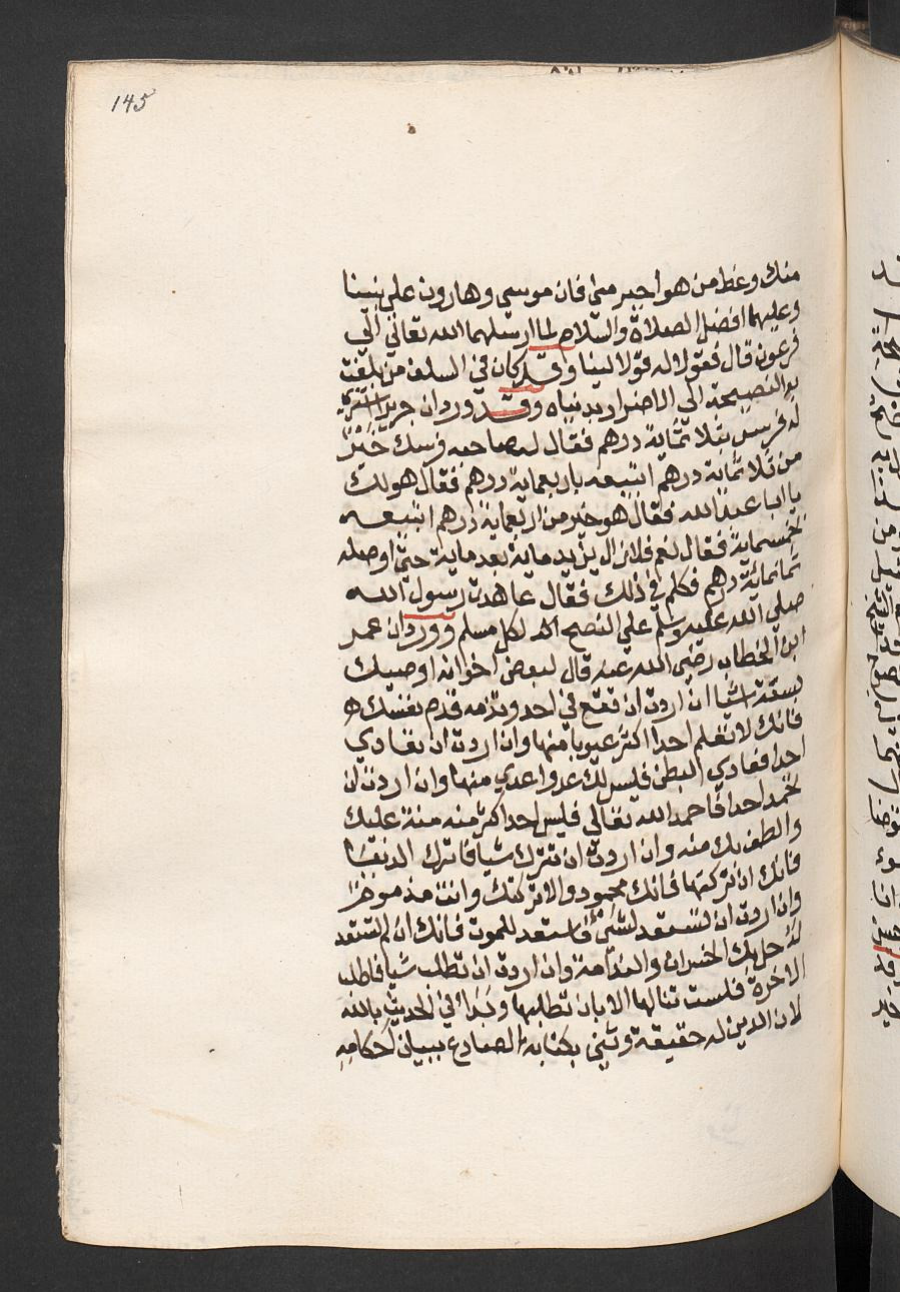 145
منك وعظ من هو اخير مني فان موسي وهارون علي نبينا
وعليهما افضل الصلاة والسلام لما ارسلهما الله تعالي الي
فرعون قال فقولا له قولا لينا وقد كان في السلف من بلغت
به النصيحة الي الاضرار بدنياه وقد ورد ان جريرا اشتري
له فرس بثلاثماية درهم فقال لصاحبه فرسك خير
من ثلاثماية درهم اتبيعه باربعماية درهم فقال هو لك
يا ابا عبد الله فقال هو خير من اربعماية درهم اتبيعه
بخمسماية فقال نعم فلا زال يزيد ماية بعد ماية حتي اوصله
ثمانمائة درهم فكلم في ذلك فقال عاهدت رسول الله
صلي الله عليه وسلم علي النصح لكل مسلم وورد ان عمر
ابن الخطاب رضي الله عنه قال لبعض اخوانه اوصيك
بستة اشيا ان اردت ان تقع في احد وتذمه فذم نفسك
فانك لا تعلم احدا اكثر عيوبا منها وان اردت ان تعادي
احدا فعادي البطن فليس لك عدوا عدي منها وان اردت ان
تحمد احدا فاحمد الله تعالي فليس احد اكثر منه منة عليك
والطف بك منه وان اردت ان تترك شيا فاترك الدنيا
فانك ان تركتها فانك محمود والا تركتك وانت مذموم
وان اردت ان تستعد لشيء فاستعد للموت فانك ان لم تستعد
له حل بك الخسران والندامة وان اردت ان تطلب شيا فاطلب
الاخرة فلست تنالها الا بان تطلبها وبدا في الحديث بالله
لان الدين له حقيقة وثني بكتابه الصادع ببيان احكامه